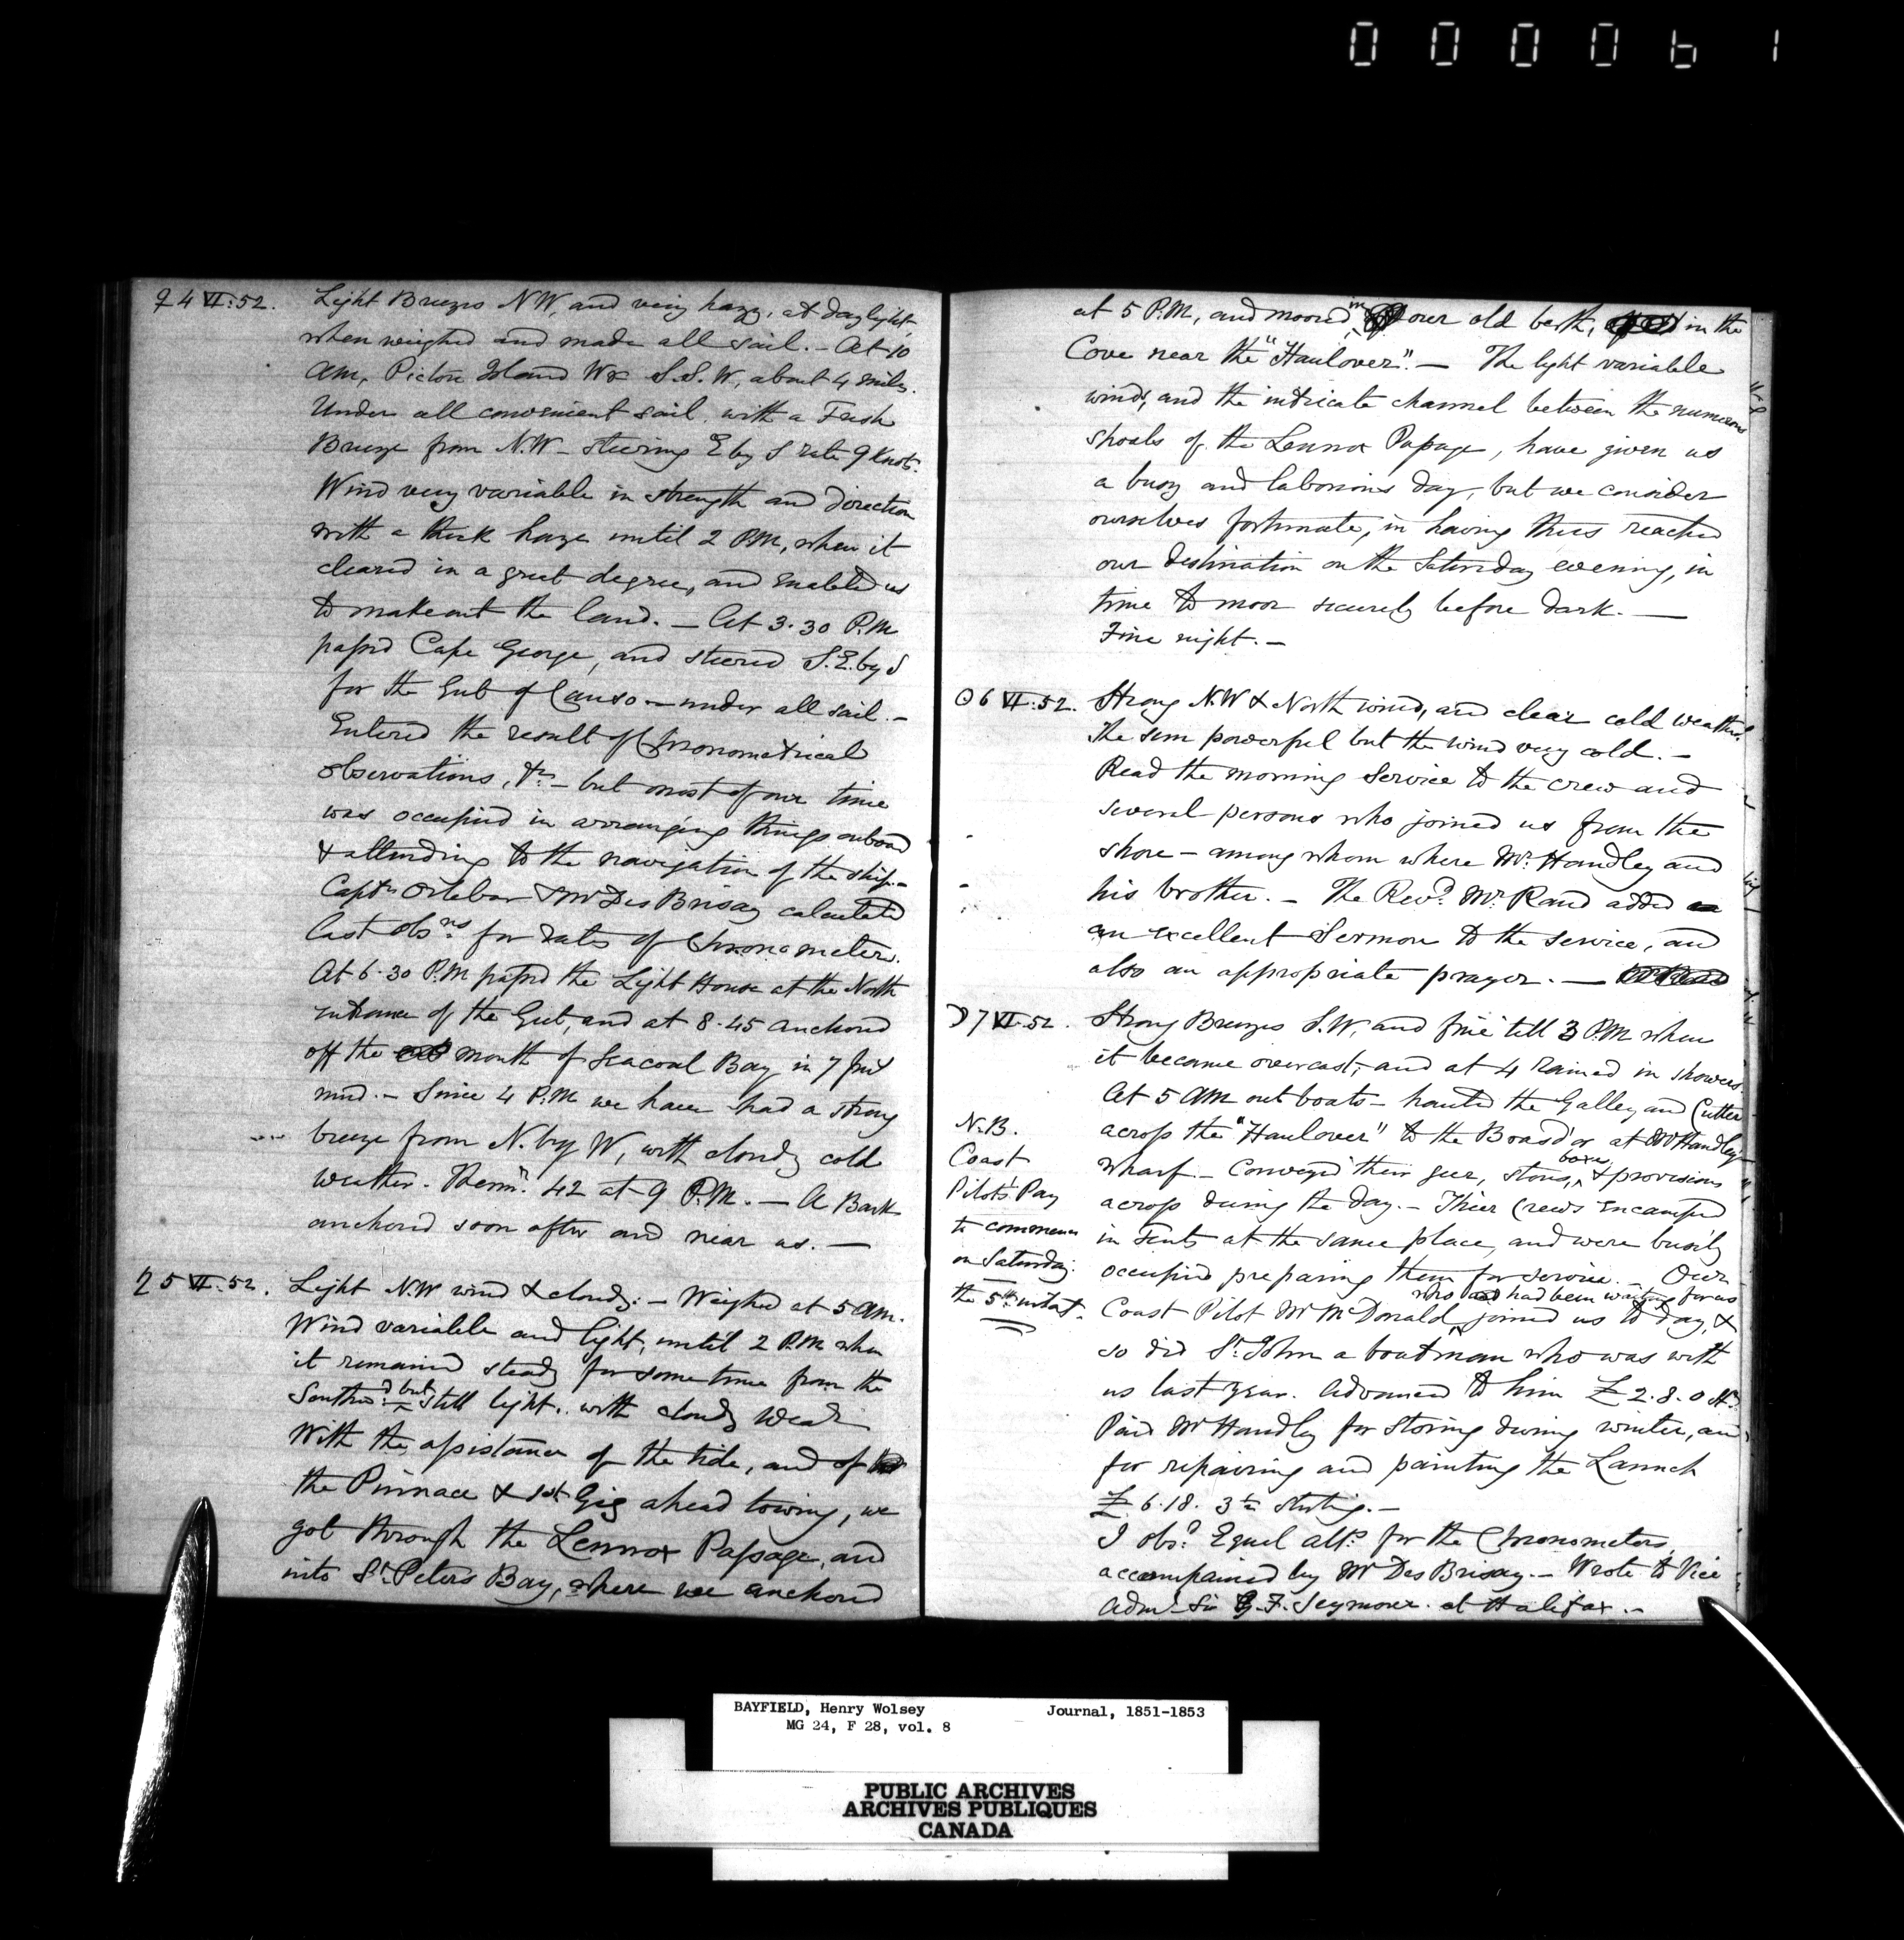 000061
♀ 4 VI:52. Light Breezes NW, and very hazy, at daylight
when weighed and made all sail. - At 10
AM, Pictou Island W & S.S.W, about 4 miles.
Under all convenient sail with a Fresh
Breeze from N.W - steering E by S rate 9 Knots.
Wind very variable in strength and direction
with a thick haze until 2 P.M, when it
cleared in a great degree, and enabled us
to make out the land. - At 3.30 P.M
passed Cape George, and steered S.E. by S
for the Gut of Canso - under all sail. -
Entered the result of Chronometrical
observations, &c - but most of our time
was occupied in arranging things onboard
& attending to the navigation of the ship. -
Captn Orlebar & Mr Des Brisay calculated
last obsns for rates of Chronometers.
At 6.30 P.M passed the Light House at the North
entrance of the Gut, and at 8.45 anchored
off the mouth of Seacoal Bay in 7 fms
mud. - Since 4 P.M we have had a strong
breeze from N. by W, with cloudy cold
weather. Thermr. 42 at 9 P.M. - A Bark
anchored soon after and near us. -
♄ 5 VI:52. Light N.W wind & cloudy: - Weighed at 5 AM.
Wind variable and light, until 2 P.M when
it remained steady for some time from the
Southwd but still light.. with cloudy Wear
With the assistance of the tide, and of
the Pinnace & 1st Gig ahead towing, we
got through the Lennox Passage, and
into St. Peters Bay, where we anchored
at 5 P.M, and moored in our old berth, in the
Cove near the "Haulover". - The light variable
winds, and the intricate channel between the numerous
shoals of the Lennox Passage, have given us
a busy and laborious day, but we consider
ourselves fortunate, in having thus reached
our destination on the Saturday evening, in
time to moor securely before dark. -
Fine night. -
☉ 6 VI:52. Strong N.W & North wind, and clear cold weather.
The sun powerful but the wind very cold. -
Read the morning Service to the crew and
several persons who joined us from the
shore - among whom where Mr. Handley and
his brother. - The Revd. Mr. Rand added
an excellent Sermon to the service, and
also an appropriate prayer. -
☽ 7 VI:52. Strong Breezes S.W, and fine till 3 P.M when
it became overcast, and at 4 Rained in showers.
At 5 AM out boats - hauled the Galley and Cutter
across the "Haulover" to the Brasd'or at Mr Handley's
wharf. - Conveyed their gear, stores, boxes, & provisions
across during the day. - Thier Crews encamped
in Tents at the same place, and were busily
occupied preparing them for service. - Our
Coast Pilot Mr McDonald, who had been waiting for us joined us to day, &
so did St. John a boatman who was with
us last year. Advanced to him £ 2.8.0 Stg
Paid Mr Handley for storing during winter, and
for repairing and painting the Launch
£ 6.18.3 sterling. -
I obsd. Equal alts. for the Chronometers,
accompanied by Mr Des Brisay. - Wrote to Vice
Adml. Sir G. F. Seymour at Halifax. -
N.B.
Coast
Pilots' Pay
to commence
on Saturday
the 5th instant.
BAYFIELD, Henry Wolsey Journal, 1851-1853
MG 24, F 28, vol. 8
PUBLIC ARCHIVES
ARCHIVES PUBLIQUES
CANADA